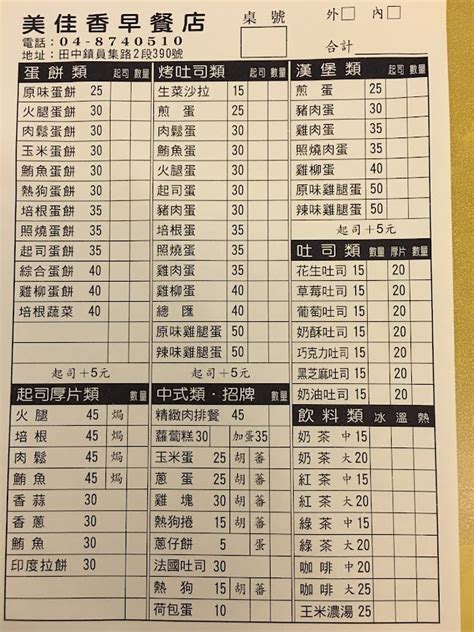 美佳香早餐店
電話：04-8740510
地址：田中鎮員集路2段390號
桌號
外 內
合計
蛋餅類 起司 數量
原味蛋餅 25
火腿蛋餅 30
肉鬆蛋餅 30
玉米蛋餅 30
鮪魚蛋餅 30
熱狗蛋餅 35
培根蛋餅 35
照燒蛋餅 35
起司蛋餅 30
綜合蛋餅 40
雞柳蛋餅 40
培根蔬菜 40
起司＋5元
起司厚片類 數量
火腿 45 焗
培根 45 焗
肉鬆 45 焗
鮪魚 45 焗
香蒜 30
香蔥 30
鮪魚 30
印度拉餅 30
烤吐司類 起司 數量
生菜沙拉 15
煎蛋 20
肉鬆蛋 30
鮪魚蛋 30
火腿蛋 30
起司蛋 30
豬肉蛋 30
培根蛋 35
照燒蛋 35
雞肉蛋 35
雞柳蛋 40
總匯 40
原味雞腿蛋 50
辣味雞腿蛋 50
起司＋5元
中式類·招牌 數量
精緻肉排餐 45
蘿蔔糕30 加蛋35
玉米蛋 30 胡 蕃
蔥蛋 30 胡 蕃
雞塊 30 胡 蕃
熱狗捲 15 胡 蕃
蔥仔餅 5 蛋
法國吐司 30
熱狗 10 胡 蕃
荷包蛋 10
漢堡類 起司 數量
煎蛋 25
豬肉蛋 30
雞肉蛋 35
照燒肉蛋 35
雞柳蛋 40
原味雞腿蛋 50
辣味雞腿蛋 50
起司＋5元
吐司類 數量 厚片 數量
花生吐司 15 20
草莓吐司 15 20
葡萄吐司 15 20
奶酥吐司 15 20
巧克力吐司 15 20
黑芝麻吐司 15 20
奶油吐司 15 20
飲料類 冰 溫 熱
奶茶 中15
奶茶 大20
紅茶 中15
紅茶 大20
綠茶 中15
綠茶 大20
咖啡 中15
咖啡 大20
玉米濃湯 25